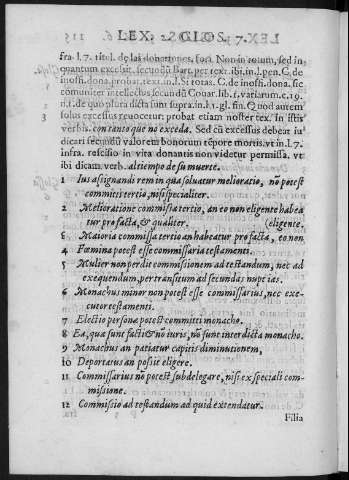 LEX, 2. GLOS. 7.
fra. l. 7. titul. de las donationes. fori. Non in totum, sed in
quantum excessit. secundũ Bart. per text. ibi. in l. pen. C. de
inoffi. dona. probat. text. in l. si totas. C. de inoffi. dona. sic
comuniter intellectus secundũ Couar. lib. 1. variarum. c. 19.
n. 1. de quo plura dicta sunt supra. in h. l. gl. fin. Quod autem
3 solus excessus reuocetur: probat etiam noster tex. in istis
verbis. con tanto que no exceda. Sed cũ excessus debeat iu
dicari secundũ valorem bonorum tẽpore mortis. vt in. l. 7.
infra. rescisio in vita donantis non videtur permissa. vt
ibi dicam verb. al tiempo de su muerte.
1 Ius assignandi rem in qua soluatur melioratio, nõ potest
committi tertio, nisi specialiter.
2 Melioratione commissa tertio, an eo non eligente habea
tur pro facta, & qualiter. (eligente.
3 Maioria commissa tertio an habeatur pro facta, eo non
4 Fœmina potest esse commissaria testamenti.
5 Mulier non perdit commissionem ad testandum, nec ad
exequendum, per transitum ad secundas nuptias.
6 Monachus minor non potest esse commissarius, nec exe-
cutor testamenti.
7 Electio personæ potest committi monacho.
8 Ea, quæ sunt facti & nõ iuris, nõ sunt interdicta monacho.
9 Monachus an patiatur capitis diminutionem,
10 Deportatus an possit eligere.
11 Commissarius nõ potest subdelegare, nisi ex speciali com-
missione.
12 Commissio ad testandum ad quid extendatur.
Filia